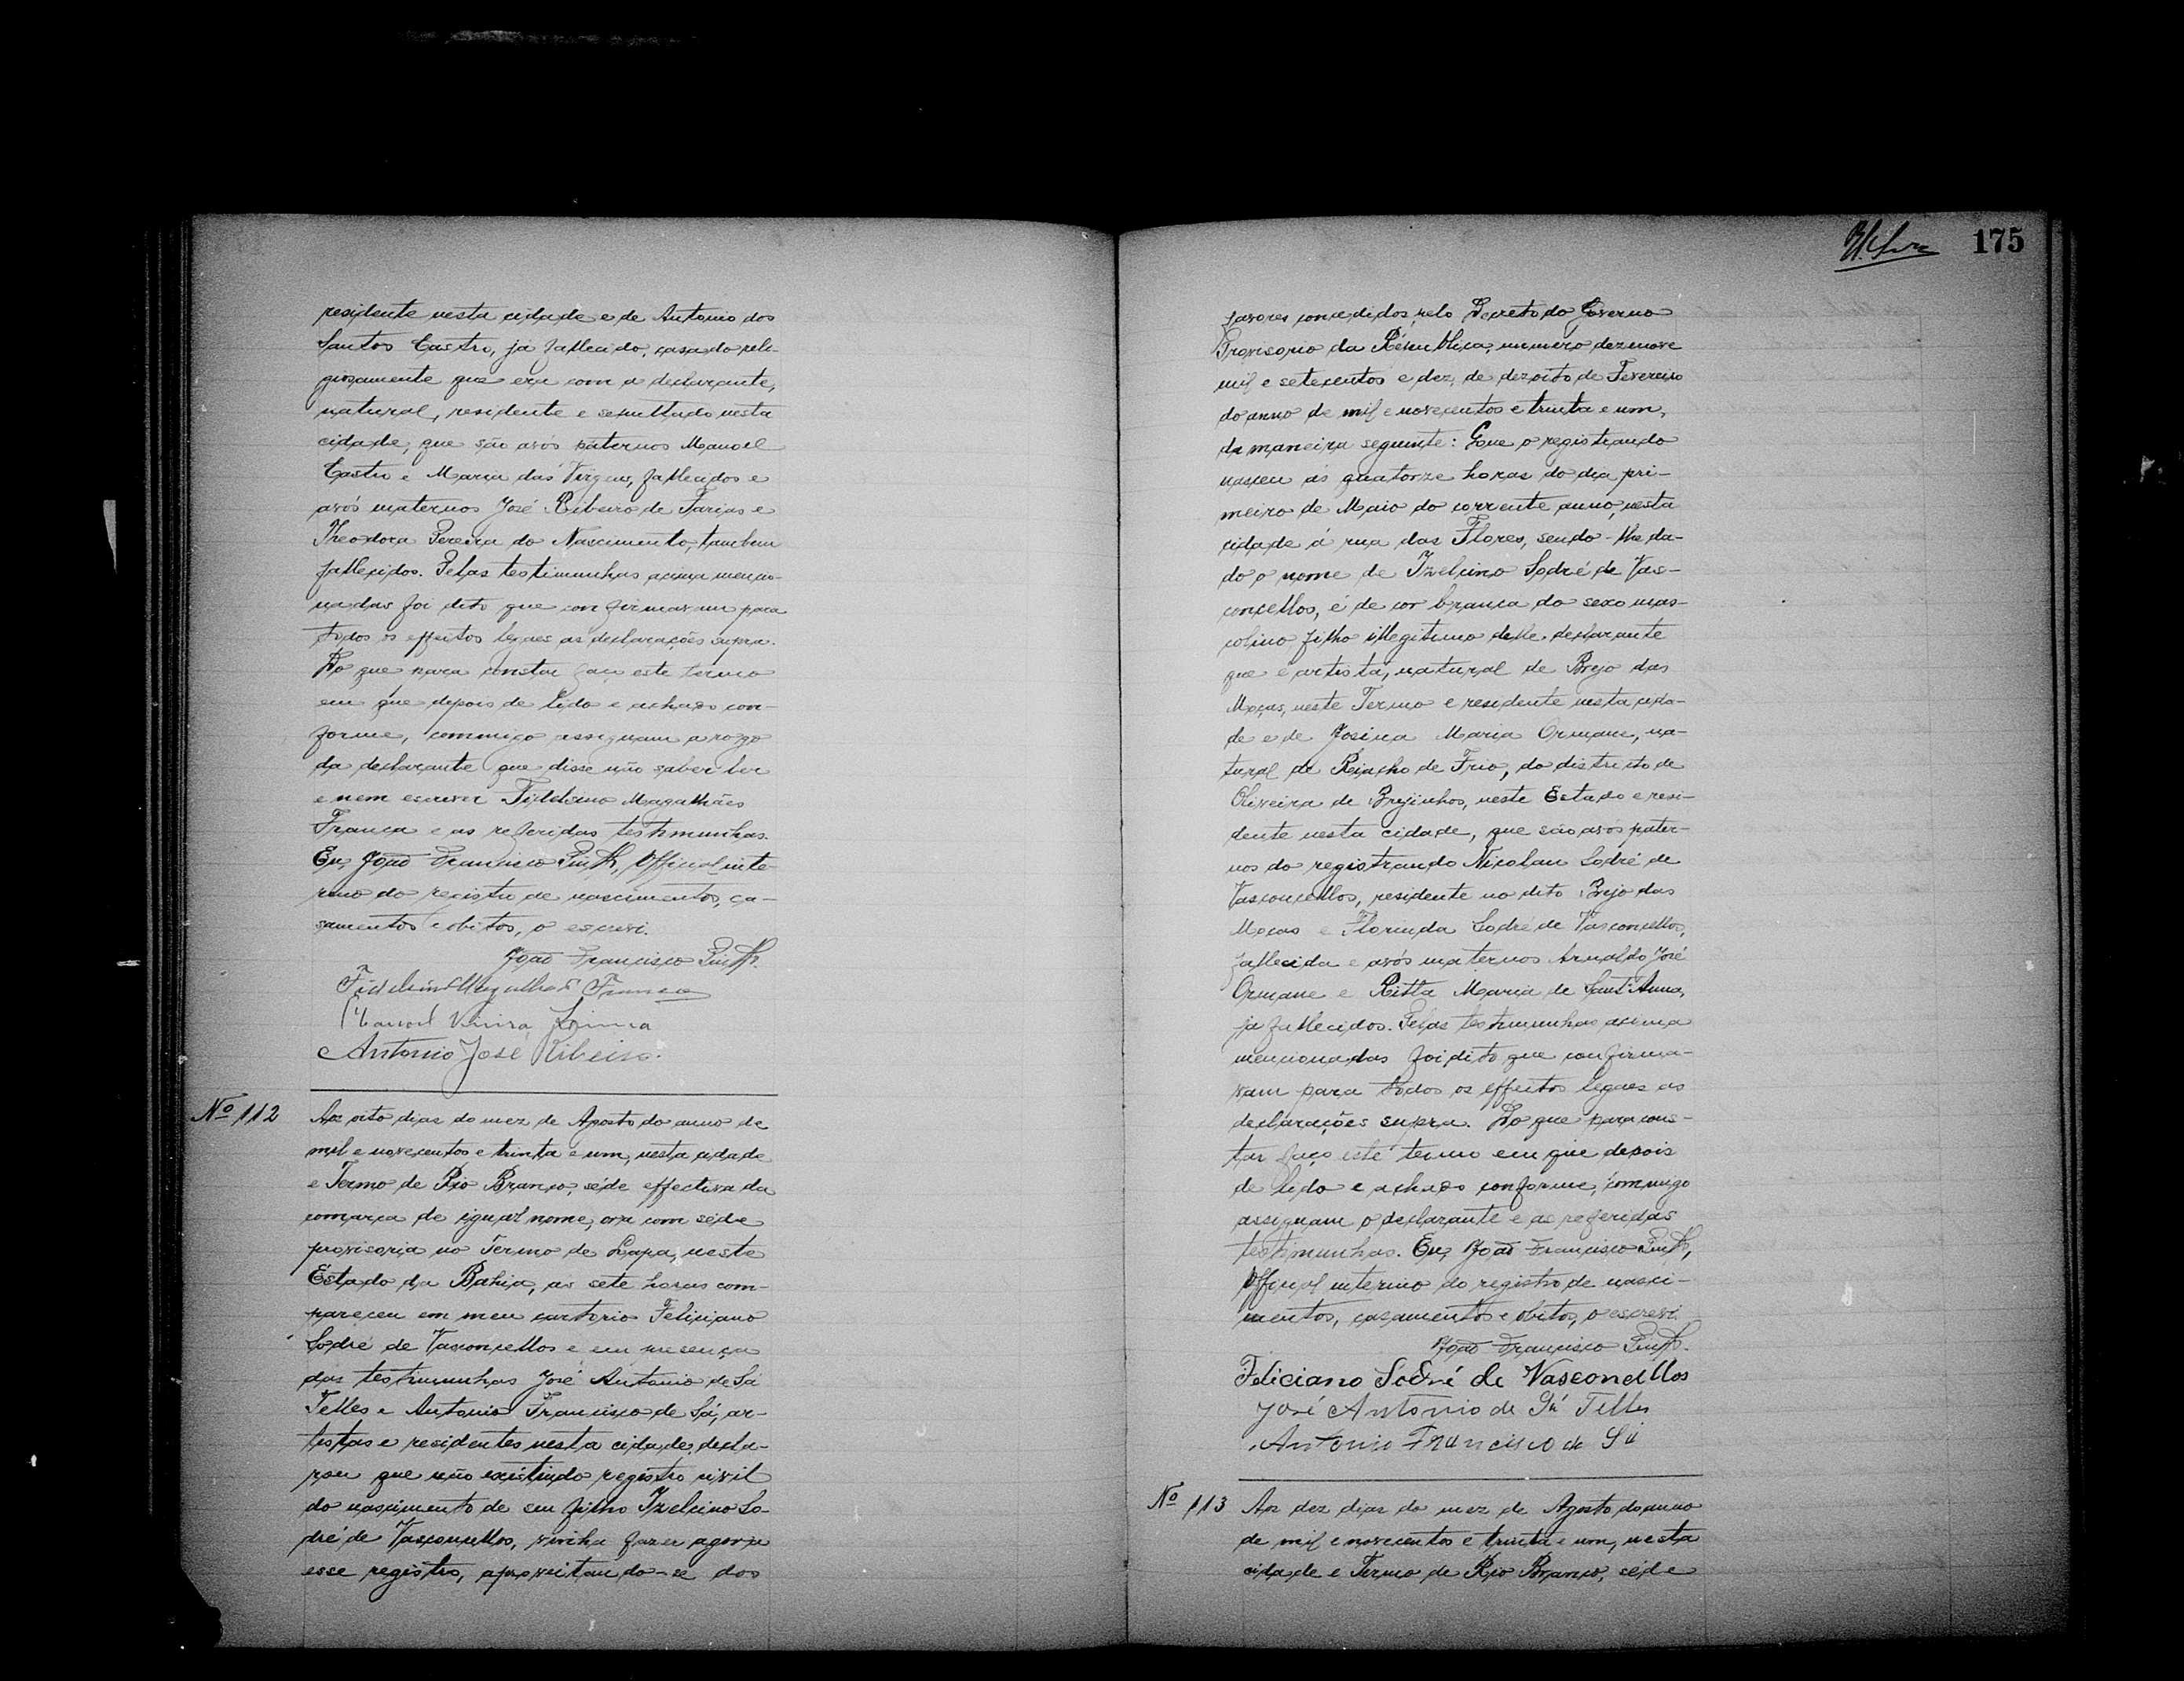 residente nesta cidade e de Antonio dos
Santos Castro, já fallecido, casado reli-
giosamente que era com a declarante,
natural, residente e sepultado nesta
cidade; que são avós paternos Manoel
Castro e Maria das Virgens, fallecidos e
avós maternos José Ribeiro de Farias e
Theodora Pereira do Nascimento, tambem
fallecidos. Pelas testimunhas acima mencio-
nadas foi dito que confirmavam para
todos os effeitos legaes as declarações supra.
Do que para constar faço este termo
em que depois de lido e achado con-
forme, commigo assignam a rogo
da declarante que disse não saber ler
e nem escrever Fidelsino Magalhães
Franca e as referidas testimunhas.
Eu, João Francisco, Official inte-
rino do registro de nascimentos, ca-
samentos e obitos, o escrevi.
João Francisco
Magalhães Franca
Manoel Vieira
Antonio José Ribeiro.
Nº 112
Aos oito dias do mez de Agosto do anno de
mil e novecentos e trinta e um, nesta cidade
e Termo de Rio Branco, séde effectiva da
comarca de igual nome, ora com séde
provisoria no Termo de Lapa, neste
Estado da Bahia, as sete horas com-
pareceu em meu cartorio Feliciano
Sodré de Vasconcellos e em presença
das testimunhas José Antonio de Sá
Telles e Antonio Francisco de Sá, ar-
tistas e residentes nesta cidade, decla-
rou que não existindo registro civil
do nascimento de seu filho Izelcino So-
dré de Vasconcellos, vinha fazer agora
esse registro, aproveitando-se dos
175
favores concedidos pelo Decreto do Governo
Provisorio da Républica, numero dezenove
mil e setecentos e dez, de dezoito de Fevereiro
do anno de mil e novecentos e trinta e um,
da maneira seguinte: Que o registrando
nasceu ás quatorze horas do dia pri-
meiro de Maio do corrente anno, nesta
cidade á rua das Flores, sendo-lhe da-
do o nome de Izelcino Sodré de Vas-
concellos, é de cor branca do sexo mas-
colino filho illegitimo delle declarante
que é artista, natural de Brejo das
Moças, neste Termo e residente nesta cida-
de e de Josina Maria Ormane, na-
tural de Riacho de Frio, do districto de
Oliveira de Brejinhos, neste Estado e resi-
dente nesta cidade, que são avós pater-
nos do registrando Nicolau Sodré de
Vasconcellos, residente no dito Brejo das
Moças e Florinda Sodré de Vasconcellos,
fallecida e avós maternos Arnaldo José
Ormane e Ritta Maria de Sant'Anna,
já fallecidos. Pelas testimunhas acima
mencionadas foi dito que confirma-
vam para todos os effeitos legaes as
declarações supra. Do que para cons-
tar faço este termo em que depois
de lido e achado conforme, commigo
assignam o declarante e as referidas
testimunhas. Eu, João Francisco,
Official interino do registro de nasci-
mentos, casamentos e obitos, o escrevi.
João Francisco
Feliciano Sodré de Vasconcellos
José Antonio de Sá Telles
Antonio Francisco de Sá
Nº 113
Aos dez dias do mez de Agosto do anno
de mil e novecentos e trinta e um, nesta
cidade e Termo de Rio Branco, séde